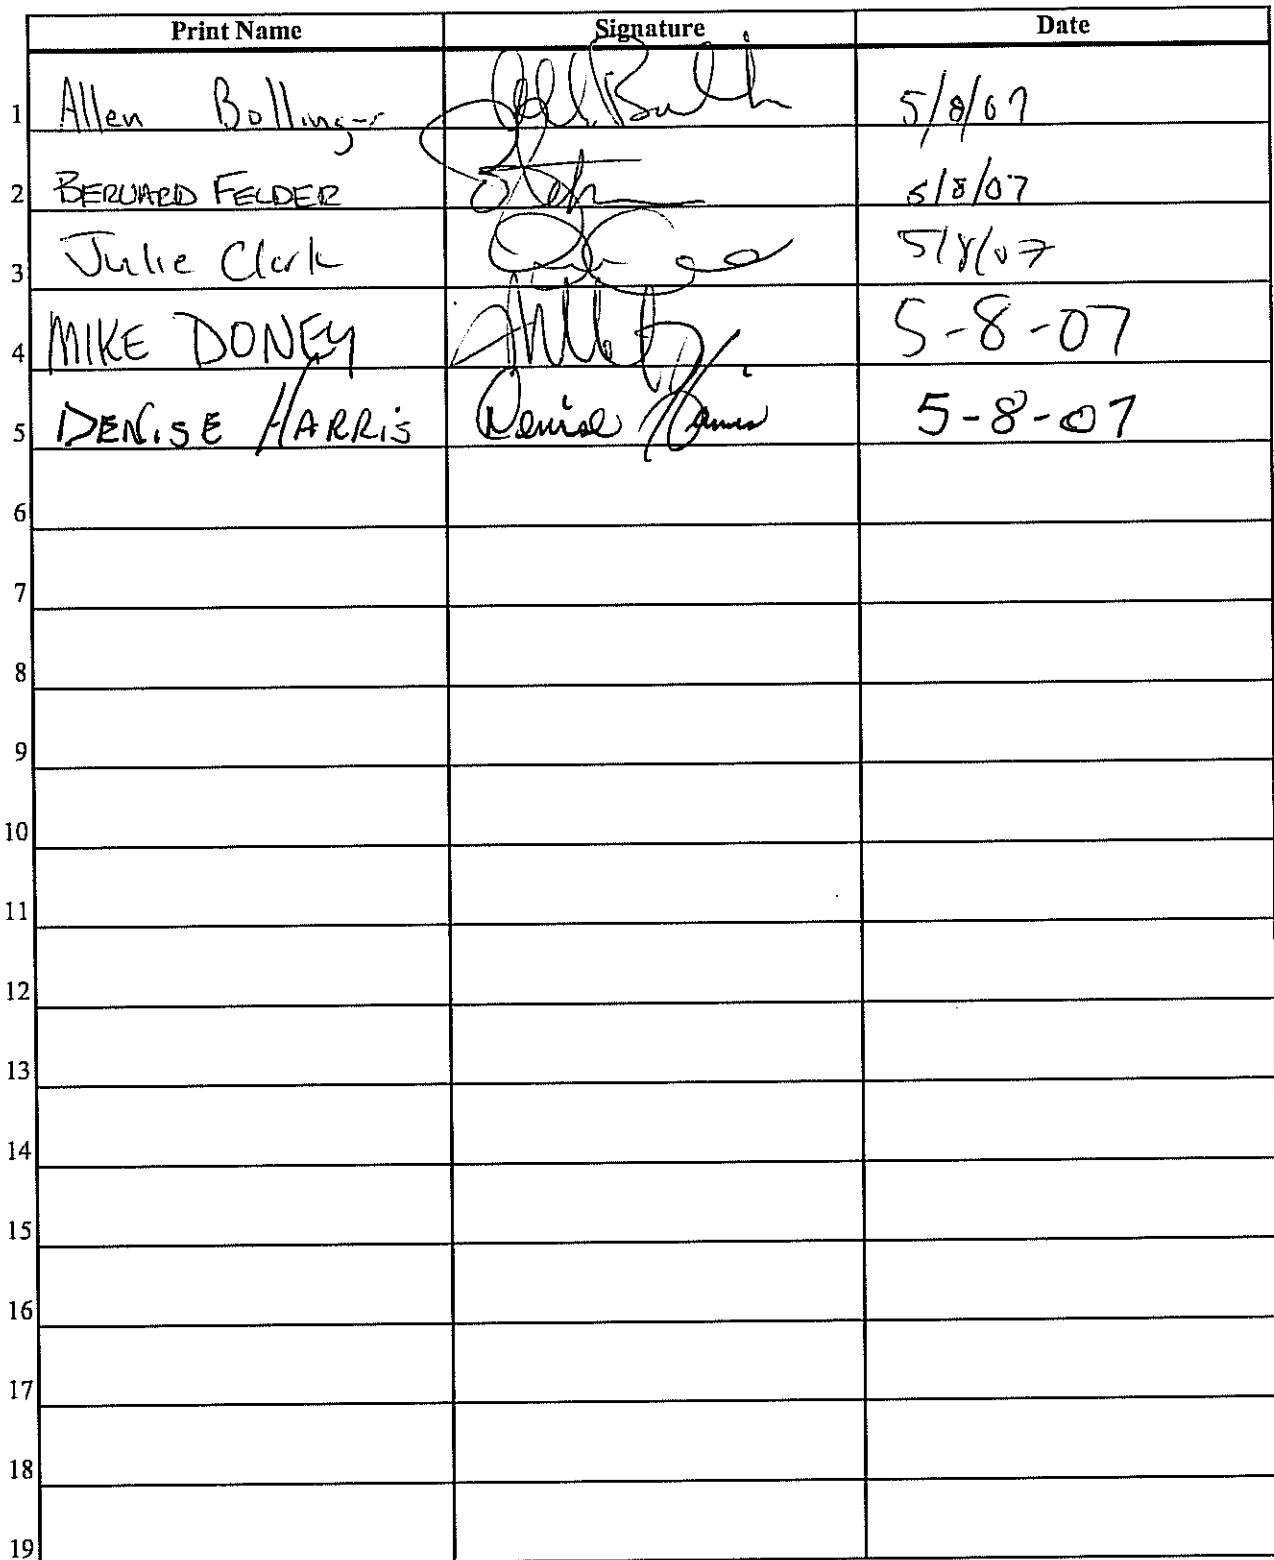 Print Name Signature Date
1 Allen Bollinger 5/8/07
2 BERNARD FELDER 5/8/07
3 Julie Clark 5/8/07
4 MIKE DONEY 5-8-07
5 DENISE HARRIS Denise Harris 5-8-07
6
7
8
9
10
11
12
13
14
15
16
17
18
19